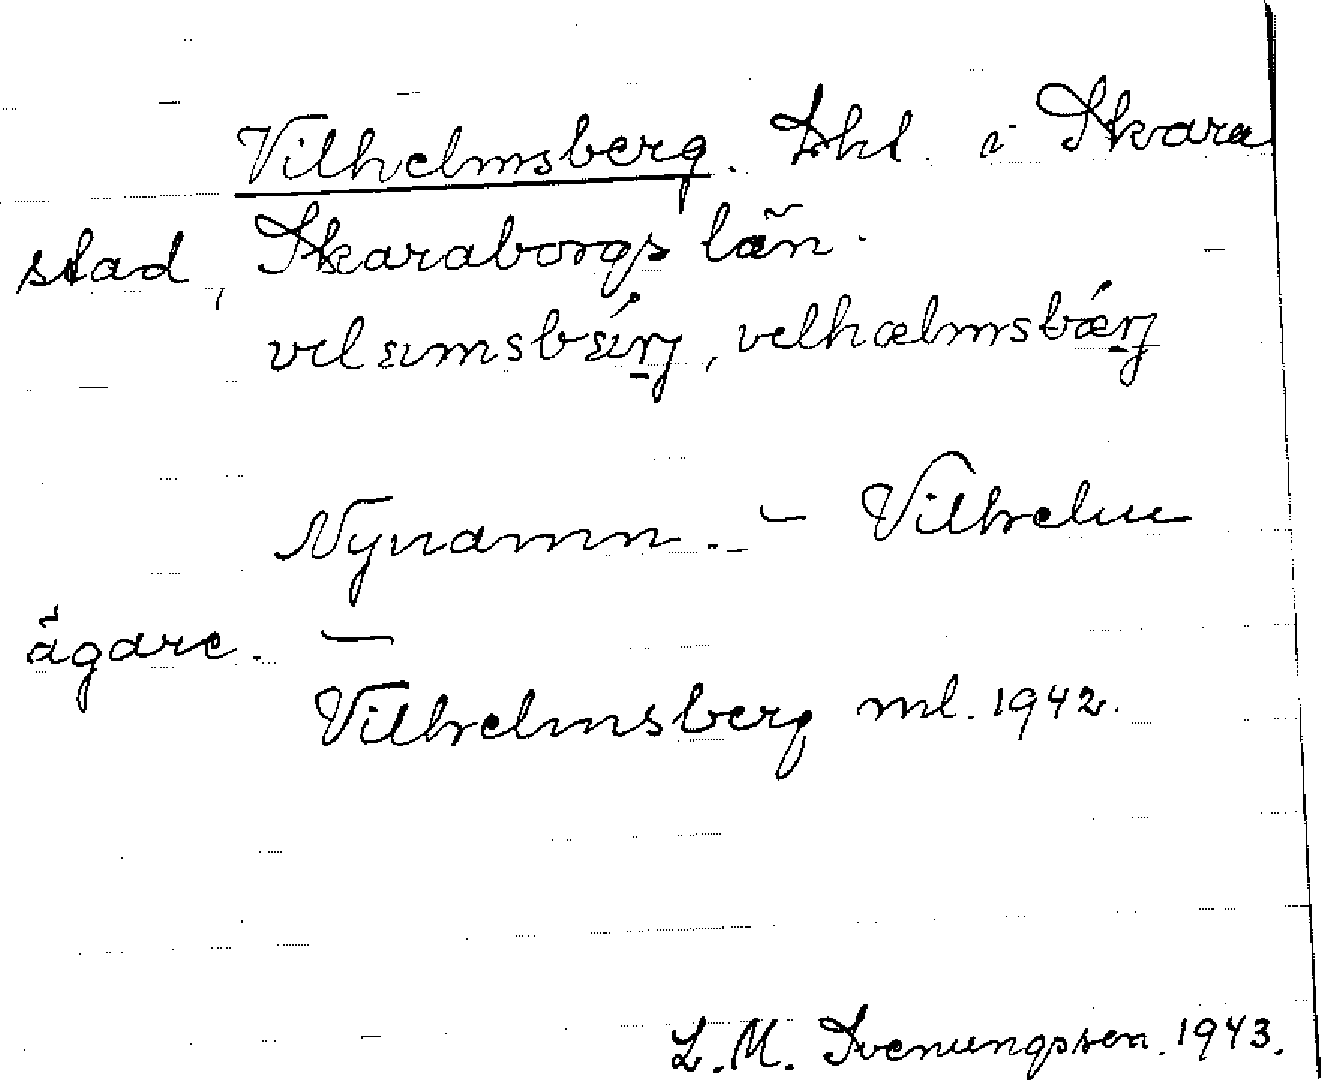 Vilhelmsberg. Lhl. i Skara
stad, Skaraborgs län.
velæmsbǽrj, velhælmsbǽrj
Nynamn. – Vilhelm
ägare. –
Vilhelmsberg ml. 1942.
L. M. Svenungsson. 1943.